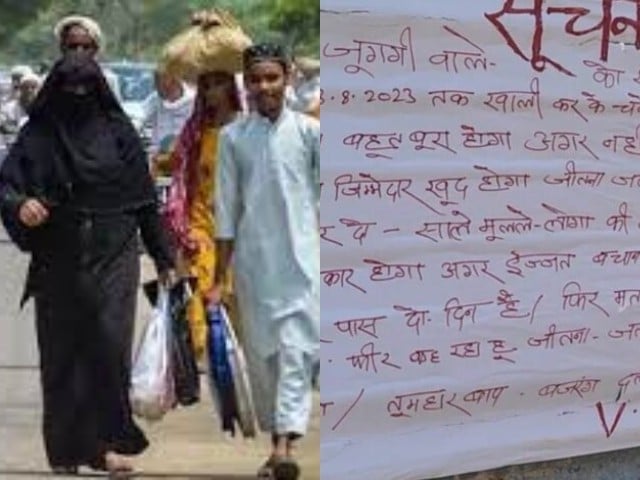 सूचन
जूगगी वाले- को
3.8.2023 तक खाली कर के-
बहुत बूरा होगा अगर नह
जिमेदार खूद होगा जीतना
र दे - साले मूलले-लोगो की
कार होगा अगर ईज्जत बचान
पास दो-दिन है / फिर मत
फीर कह रहा हू जीतना-
/ तूमहार बाप - बजरंग द
V.